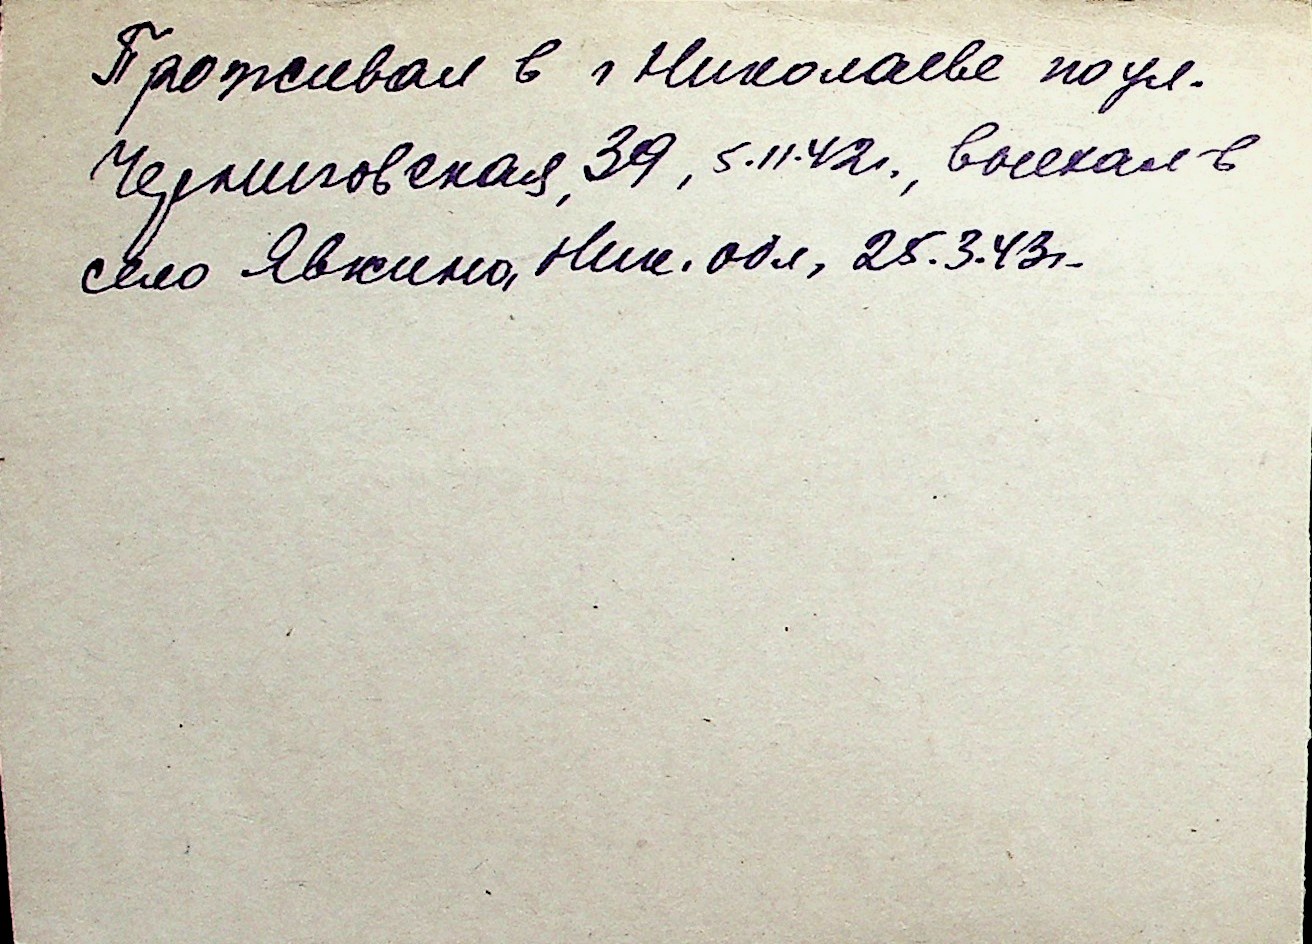 Проживал в г Николаеве по ул.
Черниговская, 39, 5.11.42г., выехал в
село Явкино, Ник. обл, 25.3.43г.